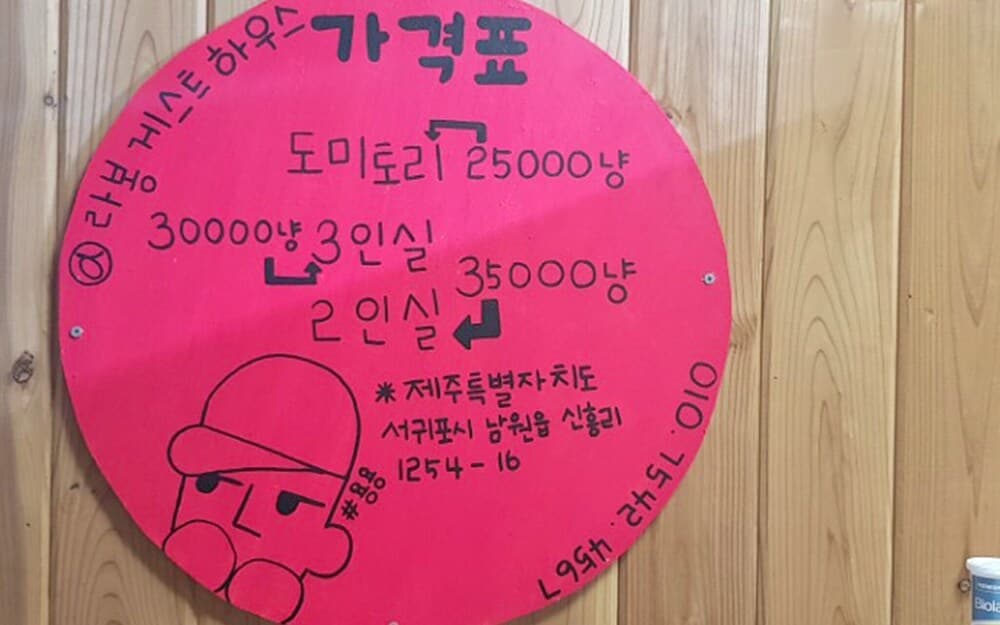 가격표
@ 라봉 게스트 하우스
도미토리 25000냥
30000냥 3인실
35000냥
2인실
* 제주특별자치도
서귀포시 남원읍 신흥리
1254-16
#용용
010. 7542. 4567